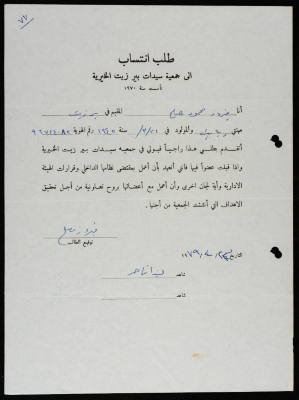 ٧٧
طلب انتساب
الى جمعية سيدات بير زيت الخيرية
تأسست سنة ١٩٧٠
أنا محمود صالح المقيم في بيرزيت
مهنتي والمولود في سنة ١٩٤٥ رقم الهوية
أتقدم بطلبي هذا راجياً قبولي في جمعية سيدات بير زيت الخيرية
واذا قبلت عضواً فيها فانني أتعهد بأن أعمل بمقتضى نظامها الداخلي وقرارات الهيئة
الادارية وأية لجان اخرى وأن أعمل مع أعضائها بروح تعاونية من أجل تحقيق
الاهداف التي أنشئت الجمعية من أجلها .
توقيع الطالب
التاريخ سنة ١٩٧٩
شاهد
شاهد